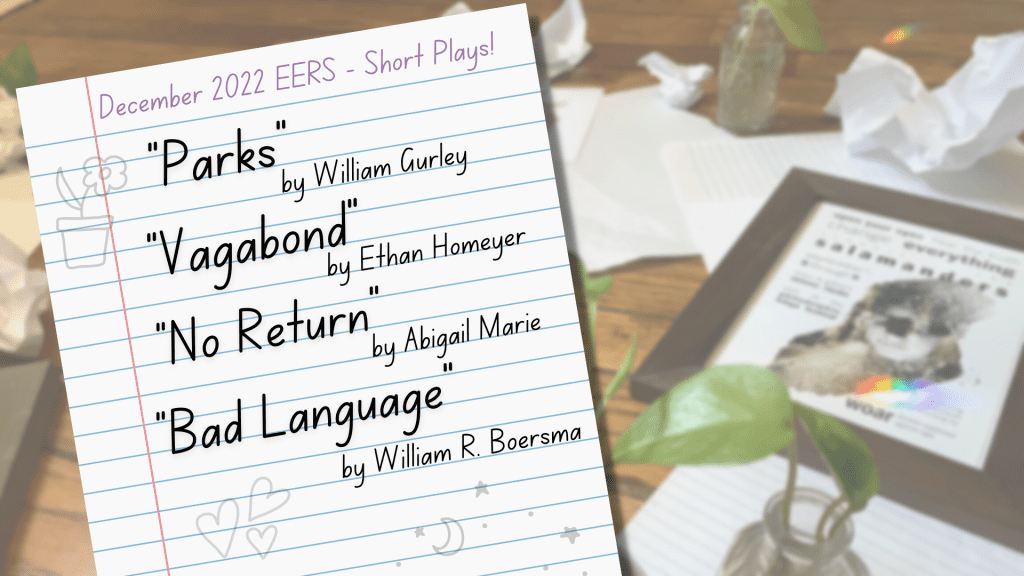 December 2022 EERS - Short Plays!
"Parks"
by William Gurley
"Vagabond"
by Ethan Homeyer
"No Return"
by Abigail Marie
"Bad Language"
by William R. Boersma
everything
salamanders
woar